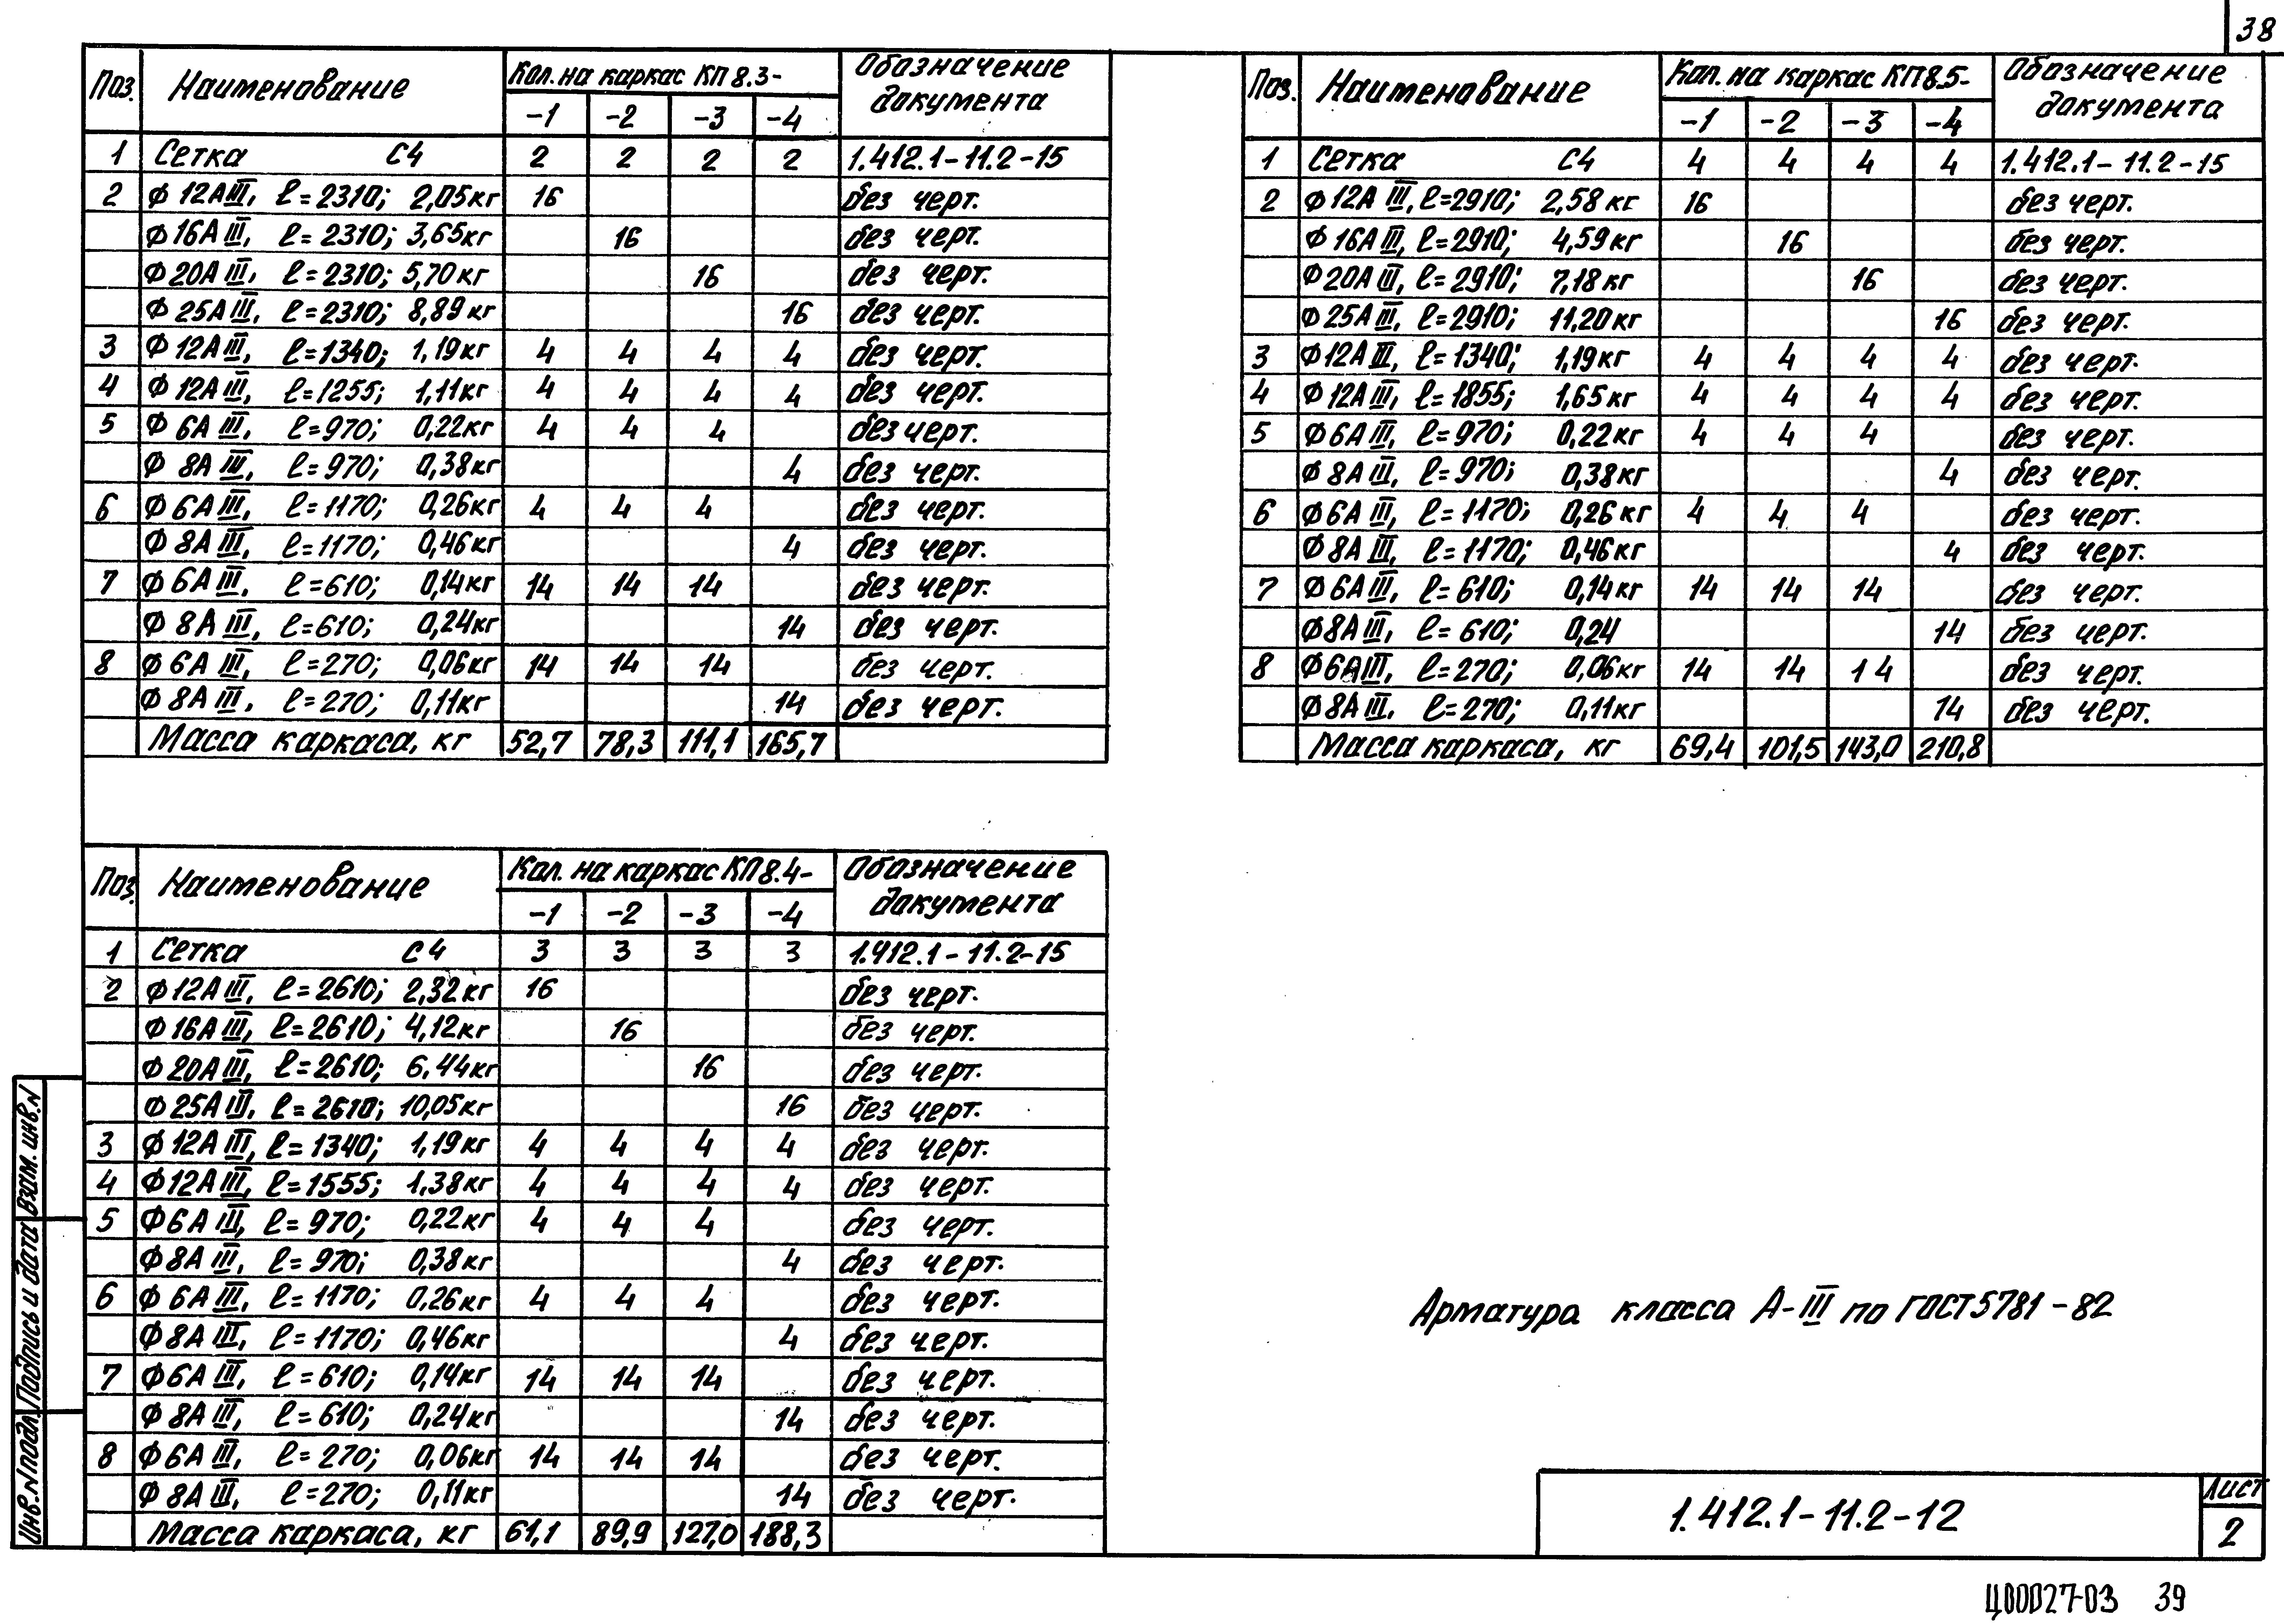 38
Поз. Наименование Кол. на каркас КП 8.3- Обозначение документа
-1 -2 -3 -4
1 Сетка С4 2 2 2 2 1.412.1-11.2-15
2 Ф 12АIII, ℓ=2310; 2,05кг 16 без черт.
Ф 16АIII, ℓ=2310; 3,65кг 16 без черт.
Ф 20АIII, ℓ=2310; 5,70кг 16 без черт.
Ф 25АIII, ℓ=2310; 8,89кг 16 без черт.
3 Ф 12АIII, ℓ=1340; 1,19кг 4 4 4 4 без черт.
4 Ф 12АIII, ℓ=1255; 1,11кг 4 4 4 4 без черт.
5 Ф 6АIII, ℓ=970; 0,22кг 4 4 4 без черт.
Ф 8АIII, ℓ=970; 0,38кг 4 без черт.
6 Ф 6АIII, ℓ=1170; 0,26кг 4 4 4 без черт.
Ф 8АIII, ℓ=1170; 0,46кг 4 без черт.
7 Ф 6АIII, ℓ=610; 0,14кг 14 14 14 без черт.
Ф 8АIII, ℓ=610; 0,24кг 14 без черт.
8 Ф 6АIII, ℓ=270; 0,06кг 14 14 14 без черт.
Ф 8АIII, ℓ=270; 0,11кг 14 без черт.
Масса каркаса, кг 52,7 78,3 111,1 165,7
Поз. Наименование Кол. на каркас КП8.5- Обозначение документа
-1 -2 -3 -4
1 Сетка С4 4 4 4 4 1.412.1-11.2-15
2 Ф 12АIII, ℓ=2910; 2,58кг 16 без черт.
Ф 16АIII, ℓ=2910; 4,59кг 16 без черт.
Ф 20АIII, ℓ=2910; 7,18кг 16 без черт.
Ф 25АIII, ℓ=2910; 11,20кг 16 без черт.
3 Ф 12АIII, ℓ=1340; 1,19кг 4 4 4 4 без черт.
4 Ф 12АIII, ℓ=1855; 1,65кг 4 4 4 4 без черт.
5 Ф 6АIII, ℓ=970; 0,22кг 4 4 4 без черт.
Ф 8АIII, ℓ=970; 0,38кг 4 без черт.
6 Ф 6АIII, ℓ=1170; 0,26кг 4 4 4 без черт.
Ф 8АIII, ℓ=1170; 0,46кг 4 без черт.
7 Ф 6АIII, ℓ=610; 0,14кг 14 14 14 без черт.
Ф 8АIII, ℓ=610; 0,24 14 без черт.
8 Ф 6АIII, ℓ=270; 0,06кг 14 14 14 без черт.
Ф 8АIII, ℓ=270; 0,11кг 14 без черт.
Масса каркаса, кг 69,4 101,5 143,0 210,8
Поз. Наименование Кол. на каркас КП 8.4- Обозначение документа
-1 -2 -3 -4
1 Сетка С4 3 3 3 3 1.412.1-11.2-15
2 Ф 12АIII, ℓ=2610; 2,32кг 16 без черт.
Ф 16АIII, ℓ=2610; 4,12кг 16 без черт.
Ф 20АIII, ℓ=2610; 6,44кг 16 без черт.
Ф 25АIII, ℓ=2610; 10,05кг 16 без черт.
3 Ф 12АIII, ℓ=1340; 1,19кг 4 4 4 4 без черт.
4 Ф 12АIII, ℓ=1555; 1,38кг 4 4 4 4 без черт.
5 Ф 6АIII, ℓ=970; 0,22кг 4 4 4 без черт.
Ф 8АIII, ℓ=970; 0,38кг 4 без черт.
6 Ф 6АIII, ℓ=1170; 0,26кг 4 4 4 без черт.
Ф 8АIII, ℓ=1170; 0,46кг 4 без черт.
7 Ф 6АIII, ℓ=610; 0,14кг 14 14 14 без черт.
Ф 8АIII, ℓ=610; 0,24кг 14 без черт.
8 Ф 6АIII, ℓ=270; 0,06кг 14 14 14 без черт.
Ф 8АIII, ℓ=270; 0,11кг 14 без черт.
Масса каркаса, кг 61,1 89,9 127,0 188,3
Арматура класса А-III по ГОСТ 5781-82
Инв.N подл. Подпись и дата Взам. инв.N
1.412.1-11.2-12
Лист
2
Ц00027-03 39